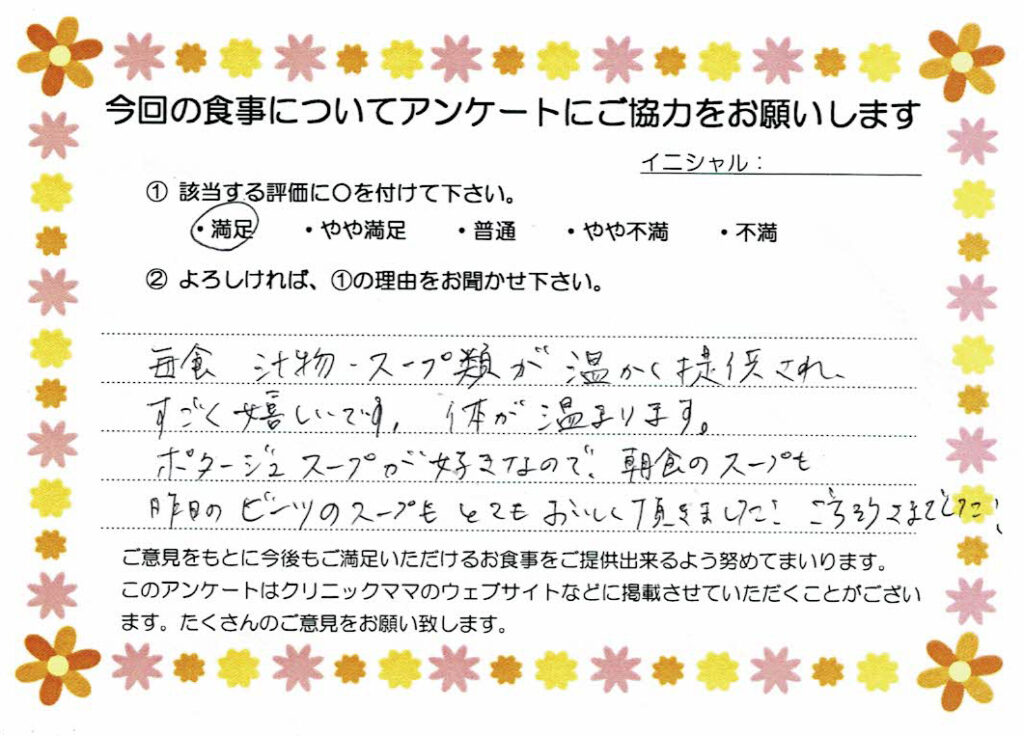 今回の食事についてアンケートにご協力をお願いします
イニシャル：
① 該当する評価に〇を付けて下さい。
・満足 ・やや満足 ・普通 ・やや不満 ・不満
② よろしければ、①の理由をお聞かせ下さい。
毎食 汁物・スープ類が温かく提供され、
すごく嬉しいです。体が温まります。
ポタージュスープが好きなので、朝食のスープも
昨日のビーンツのスープもとてもおいしく頂きました！ごちそうさまでした！
ご意見をもとに今後もご満足いただけるお食事をご提供出来るよう努めてまいります。
このアンケートはクリニックママのウェブサイトなどに掲載させていただくことがござい
ます。たくさんのご意見をお願い致します。